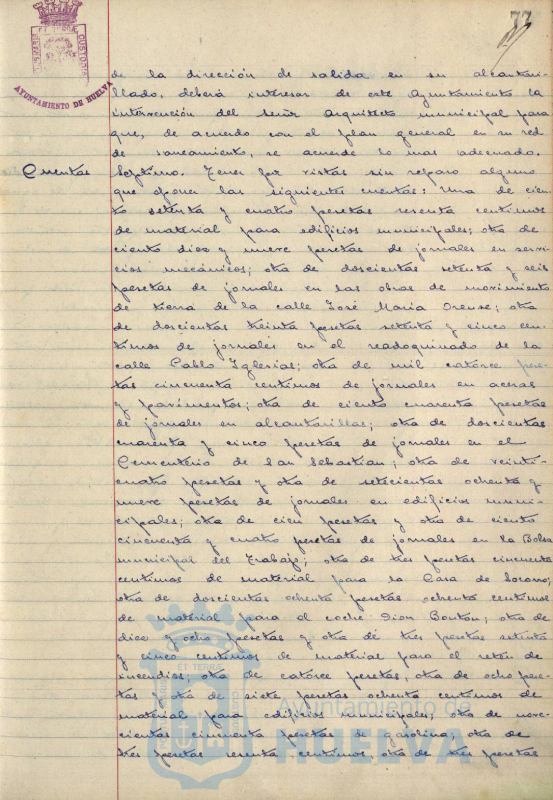 77
AYUNTAMIENTO DE HUELVA
de la dirección de salida en su alcantari-
llado, deberá interesar de este Ayuntamiento la
intervención del Señor Arquitecto municipal para
que, de acuerdo con el plan general en su red
de saneamiento, se acuerde lo mas adecuado.
Cuentas
Septimo. Tener por vistas sin reparo alguno
que oponer las siguientes cuentas: Una de cien-
to setenta y cuatro pesetas sesenta centimos
de material para edificios municipales; otra de
ciento diez y nueve pesetas de jornales en servi-
cios mecánicos; otra de doscientas setenta y seis
pesetas de jornales en las obras de movimiento
de tierra de la calle José Maria Orense; otra
de doscientas treinta pesetas setenta y cinco cen-
timos de jornales en el readoquinado de la
calle Pablo Iglesias; otra de mil catorce pese-
tas cincuenta centimos de jornales en aceras
y pavimentos; otra de ciento cuarenta pesetas
de jornales en alcantarillas; otra de doscientas
cuarenta y cinco pesetas de jornales en el
Cementerio de San Sebastian; otra de veinti-
cuatro pesetas y otra de setecientas ochenta y
nueve pesetas de jornales en edificios muni-
cipales; otra de cien pesetas y otra de ciento
cincuenta y cuatro pesetas de jornales en la Bolsa
municipal del Trabajo; otra de tres pesetas cincuenta
centimos de material para la Casa de Socorro;
otra de doscientas ochenta pesetas ochenta centimos
de material para el coche Dion Bouton; otra de
diez y ocho pesetas y otra de tres pesetas setenta
y cinco centimos de material para el retén de
incendios; otra de catorce pesetas, otra de ocho pese-
tas y otra de siete pesetas ochenta centimos de
material para edificios municipales; otra de nove-
cientas cincuenta pesetas de gasolina; otra de
tres pesetas sesenta centimos, otra de tres pesetas
Ayuntamiento de
HUELVA